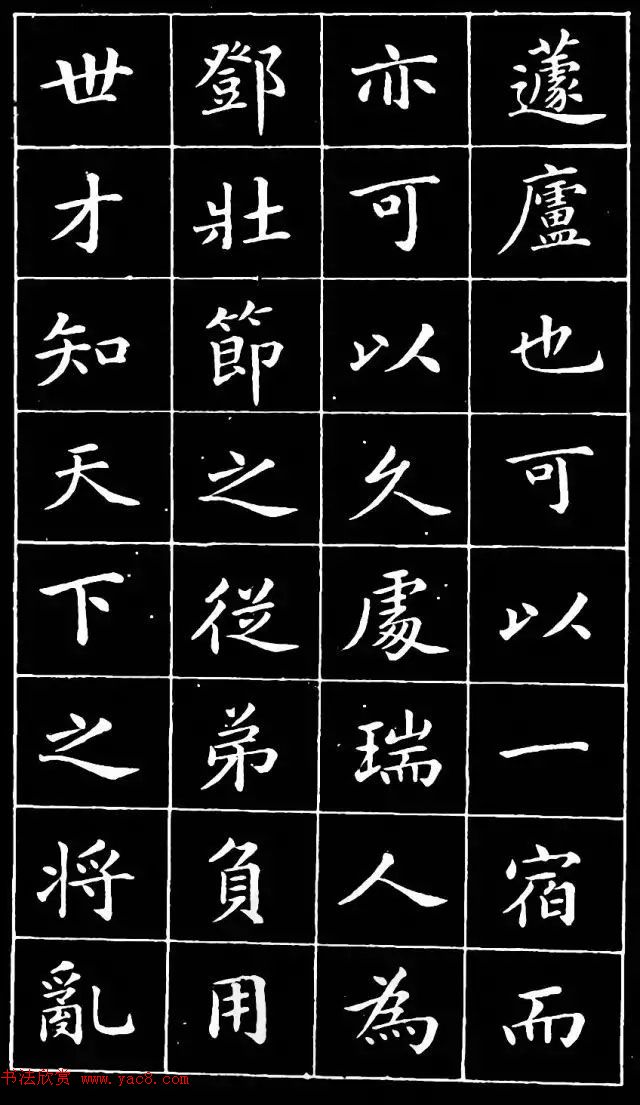 蘧廬也可以一宿而
亦可以久處瑞人為
鄧壯節之從弟負用
世才知天下之将亂
书法欣赏 www.yac8.com